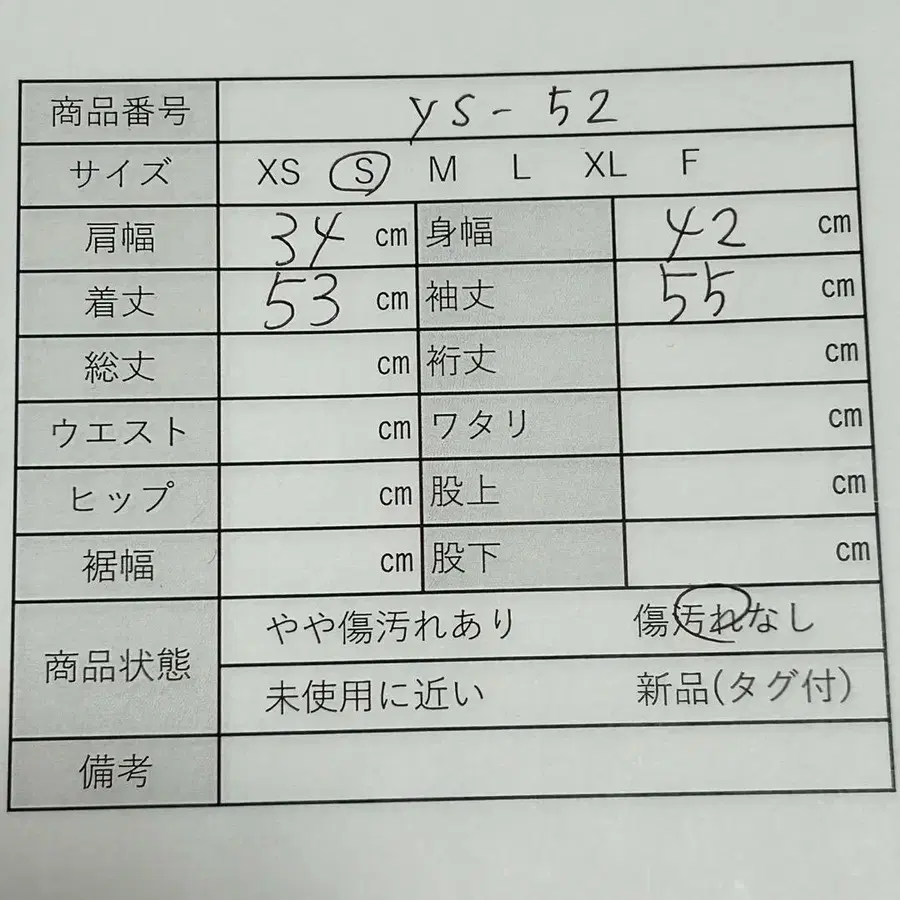 商品番号 ys-52
サイズ XS S M L XL F
肩幅 34 cm 身幅 42 cm
着丈 53 cm 袖丈 55 cm
総丈 cm 裄丈 cm
ウエスト cm ワタリ cm
ヒップ cm 股上 cm
裾幅 cm 股下 cm
商品状態
やや傷汚れあり 傷汚れなし
未使用に近い 新品(タグ付)
備考